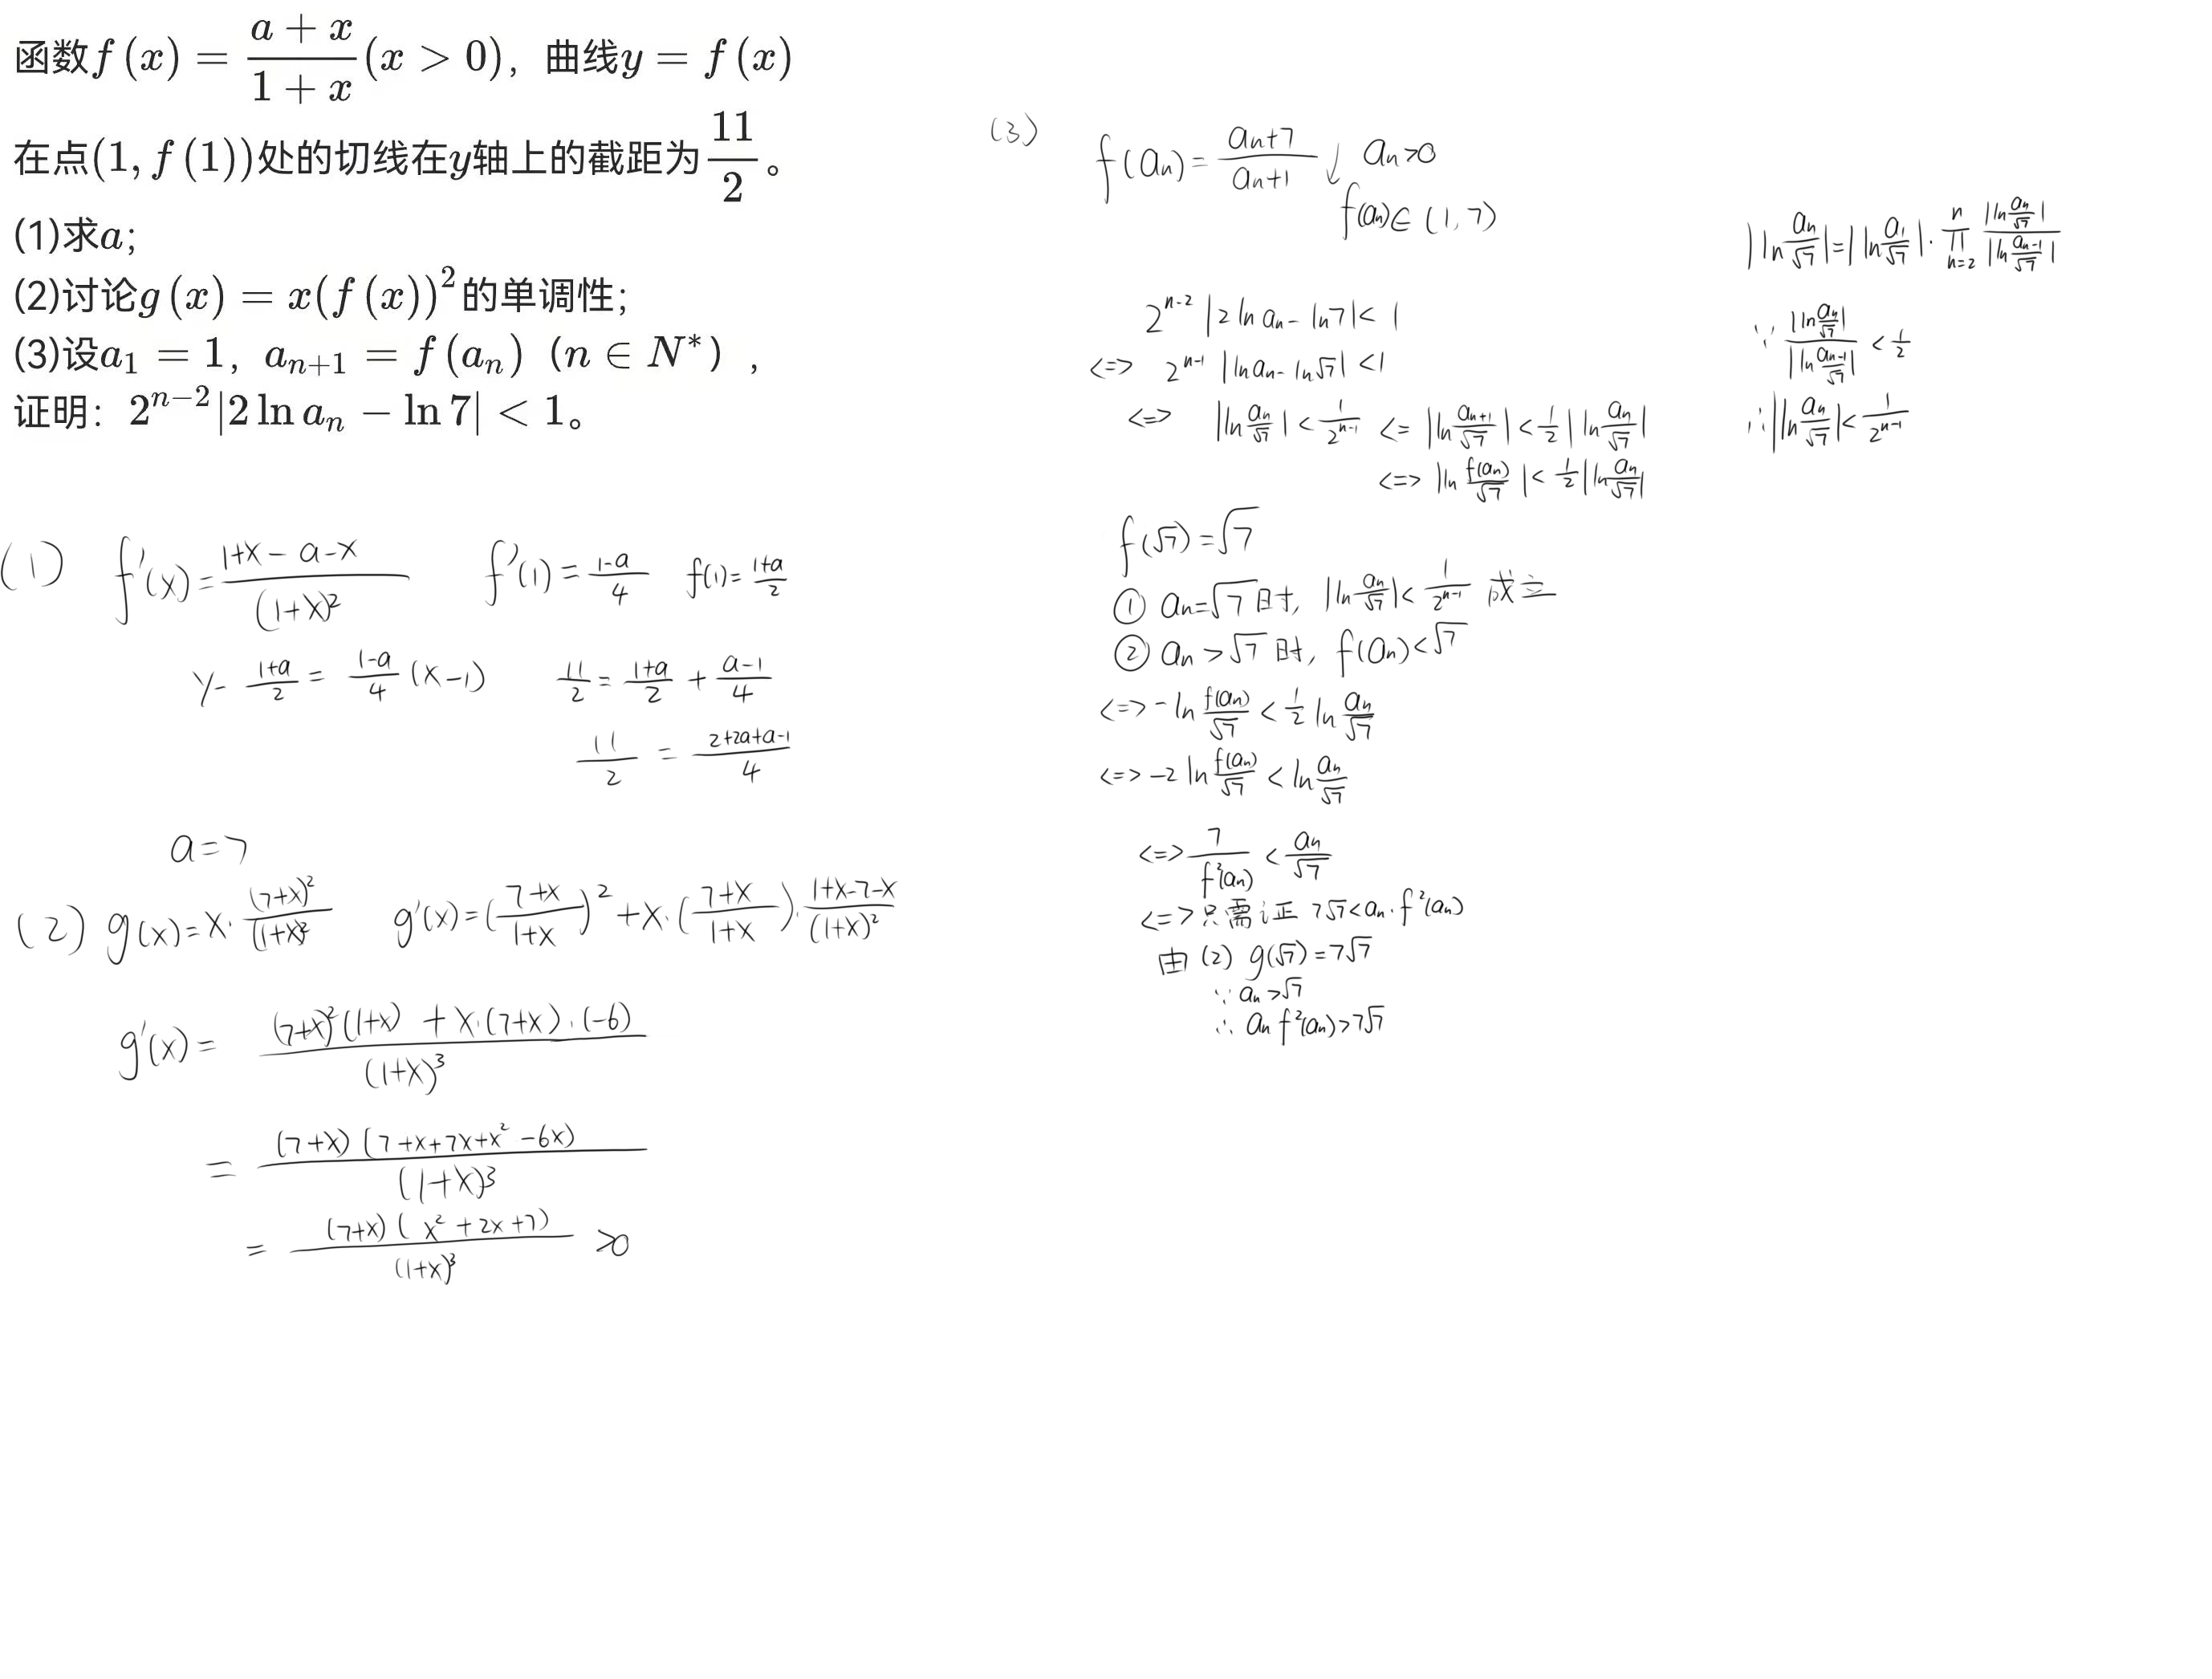 函数f(x) = \frac{a+x}{1+x}(x > 0)，曲线y = f(x)
在点(1, f(1))处的切线在y轴上的截距为\frac{11}{2}。
(1)求a;
(2)讨论g(x) = x(f(x))^2的单调性;
(3)设a_1 = 1，a_{n+1} = f(a_n)（n ∈ N^*），
证明：2^{n-2}|2 ln a_n − ln 7| < 1。
(1) f'(x) = \frac{1+x-a-x}{(1+x)^2} f'(1) = \frac{1-a}{4} f(1) = \frac{1+a}{2}
y - \frac{1+a}{2} = \frac{1-a}{4}(x-1) \frac{11}{2} = \frac{1+a}{2} + \frac{a-1}{4}
\frac{11}{2} = \frac{2+2a+a-1}{4}
a = 7
(2) g(x) = x·\frac{(7+x)^2}{(1+x)^2} g'(x) = (\frac{7+x}{1+x})^2 + x·(\frac{7+x}{1+x})·\frac{1+x-7-x}{(1+x)^2}
g'(x) = \frac{(7+x)^2(1+x) + x·(7+x)·(-6)}{(1+x)^3}
= \frac{(7+x)(7+x+7x+x^2-6x)}{(1+x)^3}
= \frac{(7+x)(x^2+2x+7)}{(1+x)^3} >0
(3) f(a_n) = \frac{a_n+7}{a_n+1} ↓ a_n>0
f(a_n) ∈ (1,7)
2^{n-2}|2 ln a_n - ln 7| < 1
<=> 2^{n-1}|ln a_n - ln √7| < 1
<=> |ln \frac{a_n}{√7}| < \frac{1}{2^{n-1}} <= |ln \frac{a_{n+1}}{√7}| < \frac{1}{2}|ln \frac{a_n}{√7}|
<=> |ln \frac{f(a_n)}{√7}| < \frac{1}{2}|ln \frac{a_n}{√7}|
f(√7) = √7
① a_n = √7 时, |ln \frac{a_n}{√7}| < \frac{1}{2^{n-1}} 成立
② a_n > √7 时, f(a_n) < √7
<=> -ln \frac{f(a_n)}{√7} < \frac{1}{2} ln \frac{a_n}{√7}
<=> -2 ln \frac{f(a_n)}{√7} < ln \frac{a_n}{√7}
<=> \frac{7}{f^2(a_n)} < \frac{a_n}{√7}
<=> 只需证 7√7 < a_n·f^2(a_n)
由(2) g(√7) = 7√7
∵ a_n > √7
∴ a_n f^2(a_n) > 7√7
|ln \frac{a_n}{√7}| = |ln \frac{a_1}{√7}|·\prod_{n=2}^{n} \frac{|ln \frac{a_n}{√7}|}{|ln \frac{a_{n-1}}{√7}|}
∵ \frac{|ln \frac{a_n}{√7}|}{|ln \frac{a_{n-1}}{√7}|} < \frac{1}{2}
∴ |ln \frac{a_n}{√7}| < \frac{1}{2^{n-1}}